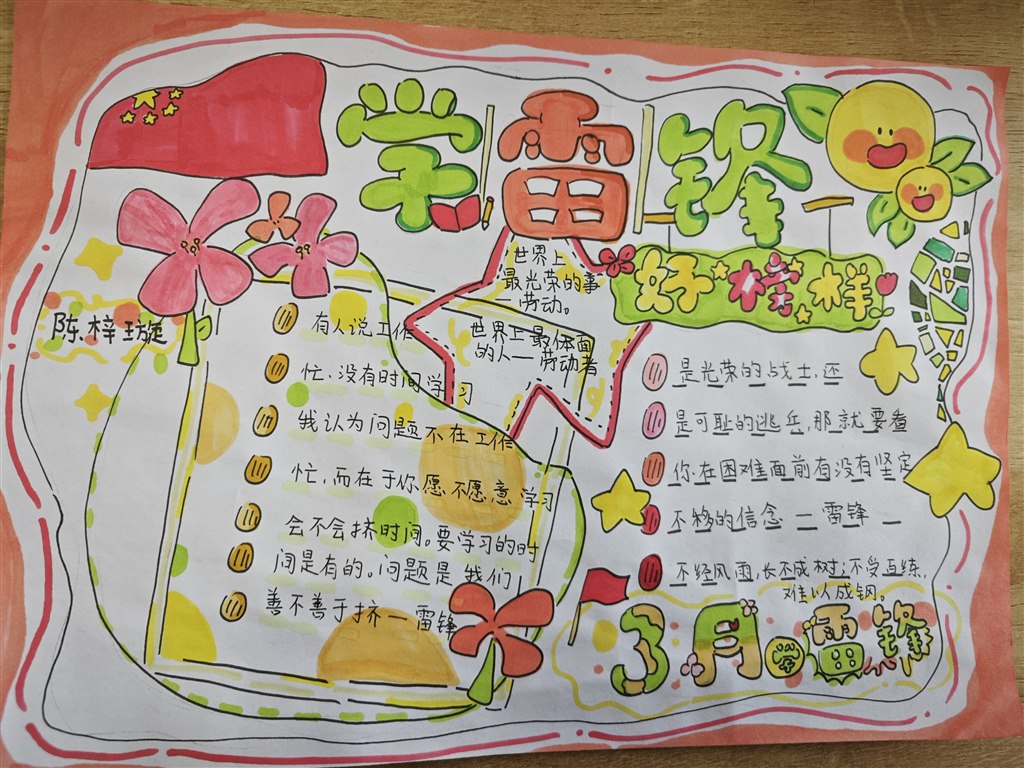 学雷锋
好榜样
陈梓璇
世界上
最光荣的事
—劳动。
世界上最体面
的人—劳动者
有人说工作
忙,没有时间学习
我认为问题不在工作
忙,而在于你愿不愿意学习
会不会挤时间。要学习的时
间是有的。问题是我们
善不善于挤—雷锋
是光荣的战士,还
是可耻的逃兵,那就要看
你在困难面前有没有坚定
不移的信念—雷锋
不经风雨,长不成树;不受百练,
难以成钢。
3月学雷锋